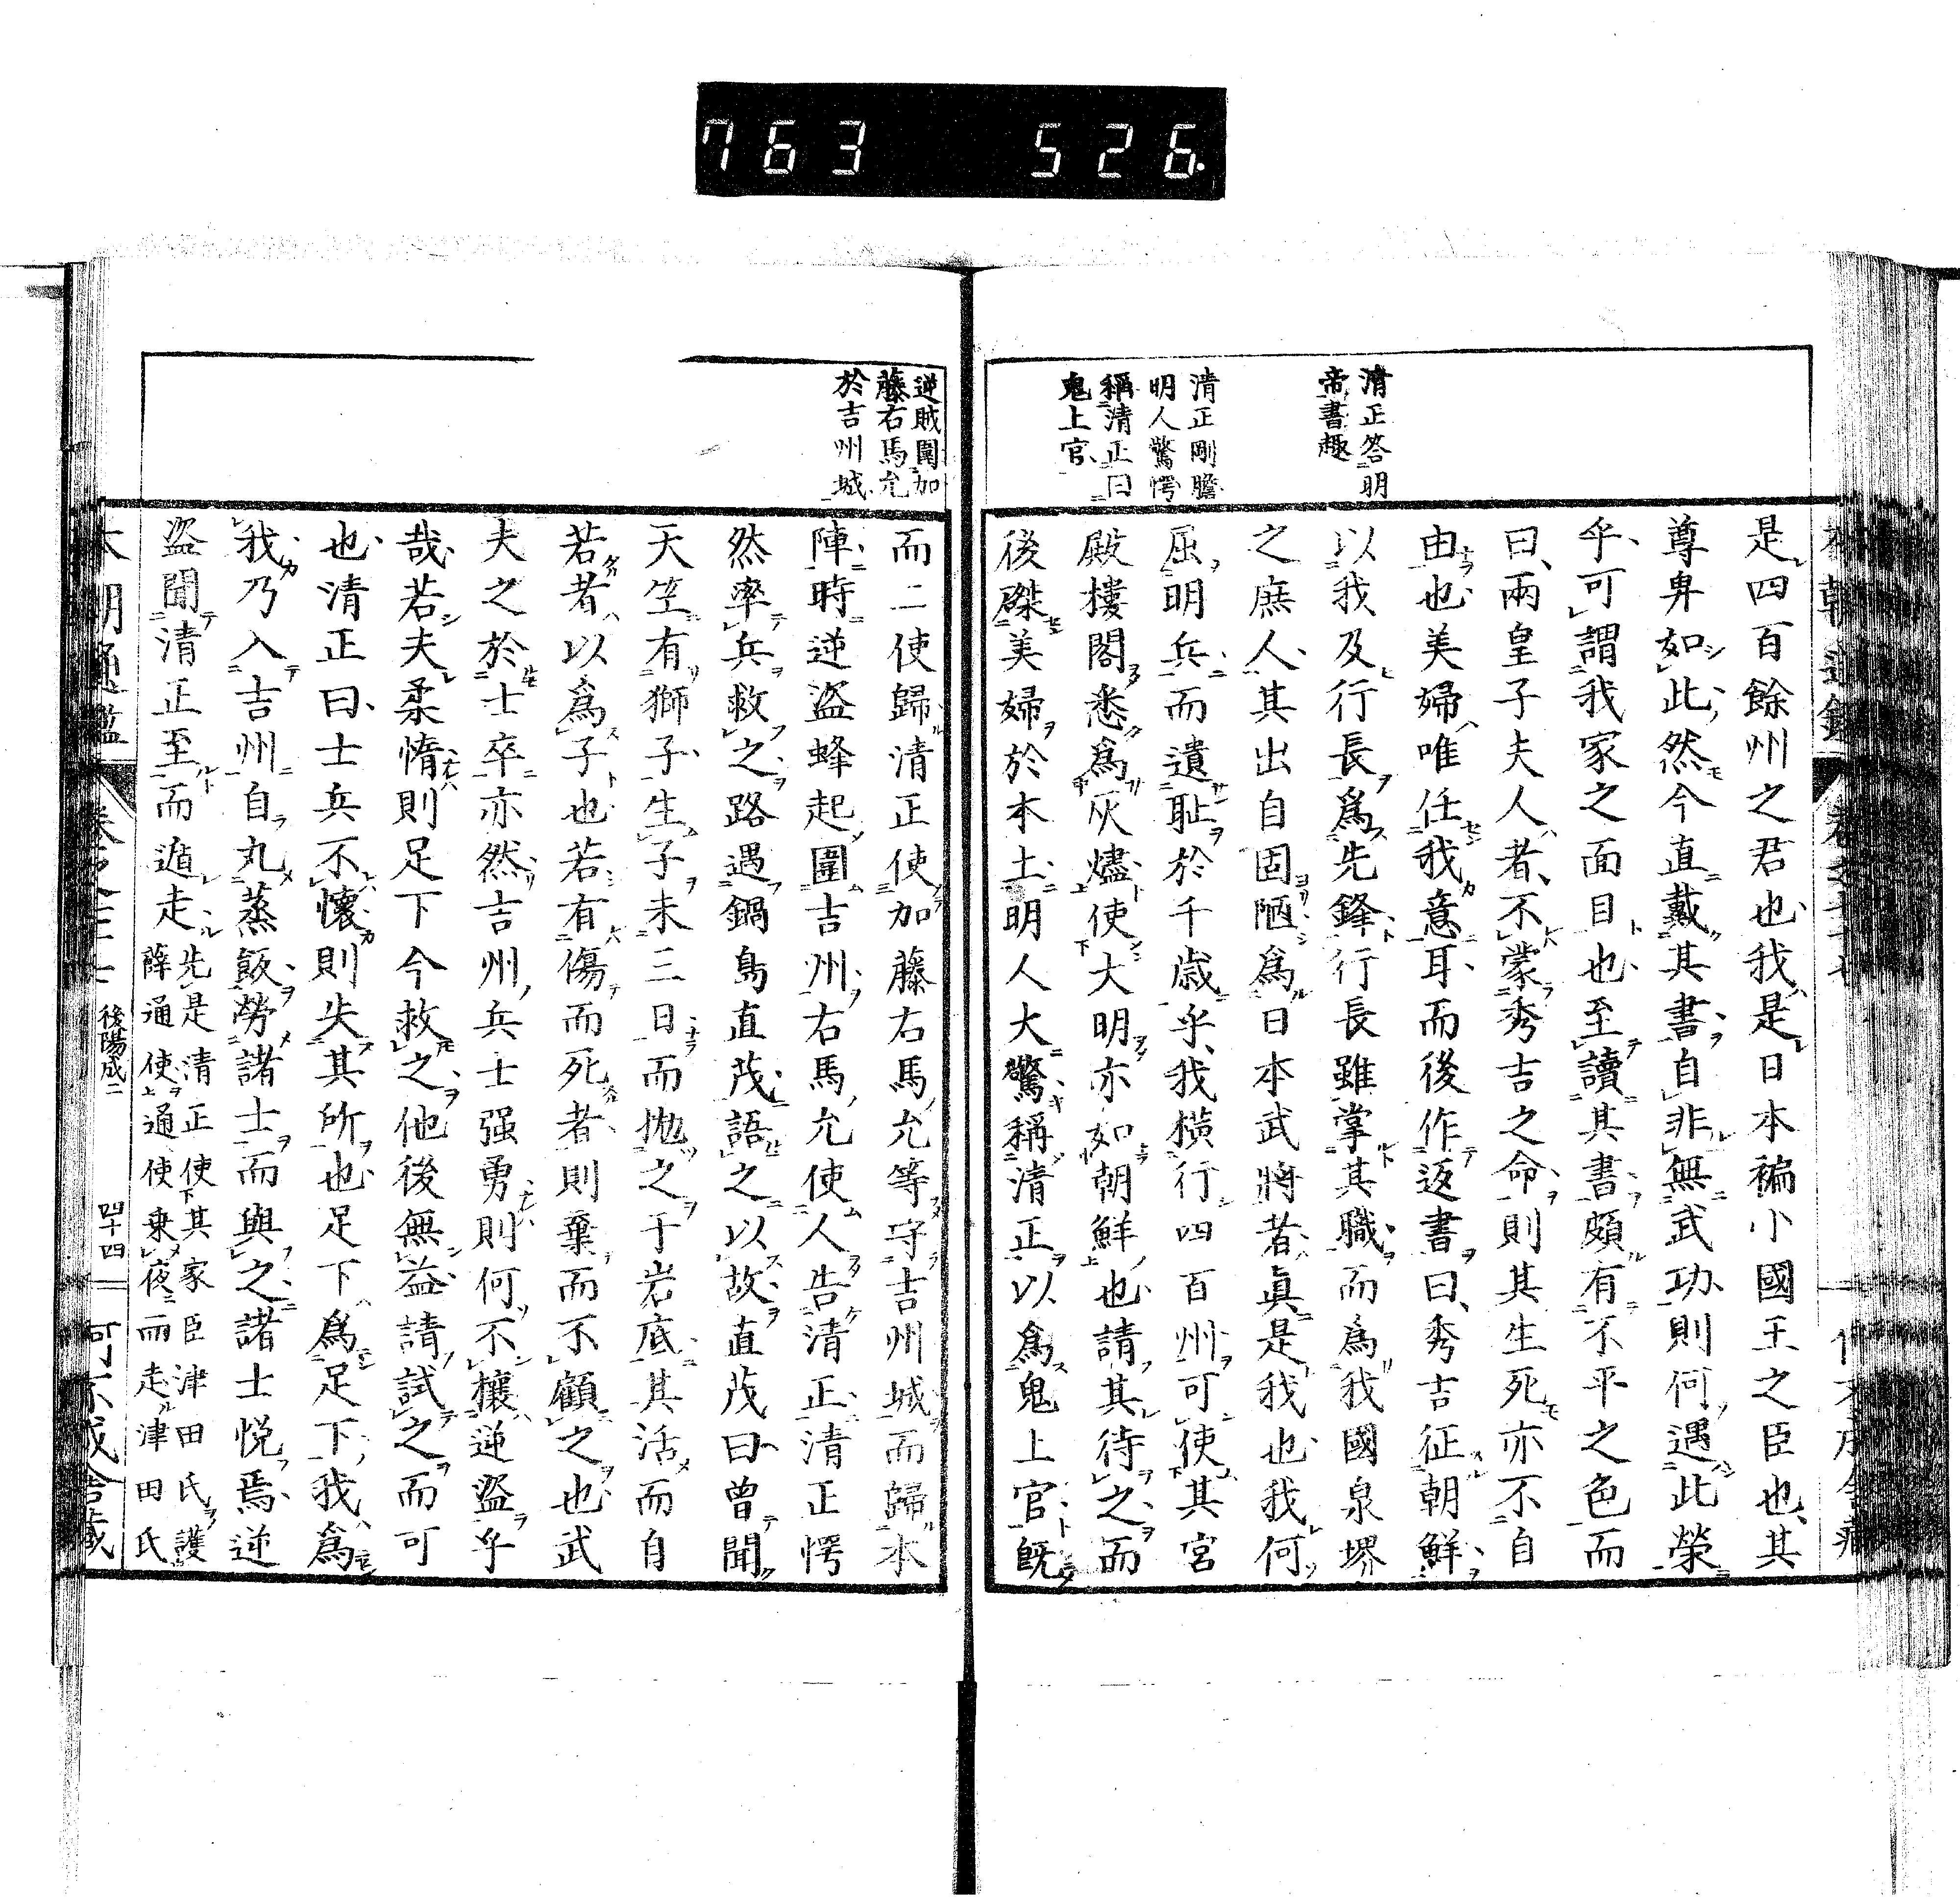 763 526.
清正答明
帝書趣
清正剛膽
明人驚愕
稱清正曰
鬼上官
是四百餘州之君也我是日本褊小國王之臣也其
尊卑如此然今直戴其書自非無武功則何遇此榮
乎可謂我家之面目也至讀其書頗有不平之色而
曰兩皇子夫人者不蒙秀吉之命則其生死亦不自
由也美婦唯任我意耳而後作返書曰秀吉征朝鮮
以我及行長爲先鋒行長雖掌其職而爲我國泉堺
之庶人其出自固陋爲日本武將者眞是我也我何
屈明兵而遺耻於千歲乎我橫行四百州可使其宮
殿樓閣悉爲灰燼使大明亦如朝鮮也請其待之而
後磔美婦於本土明人大驚稱清正以爲鬼上官既
逆賊圍加
藤右馬允
於吉州城
而二使歸清正使加藤右馬允等守吉州城而歸本
陣時逆盜蜂起圍吉州右馬允使人告清正清正愕
然率兵救之路遇鍋島直茂語之以故直茂曰曾聞
天竺有獅子生子未三日而抛之于岩底其活而自
若者以爲子也若有傷而死者則棄而不顧之也武
夫之於士卒亦然吉州兵士强勇則何不攘逆盜乎
哉若夫柔惰則足下今救之他後無益請試之而可
也清正曰士兵不懷則失其所也足下爲足下我爲
我乃入吉州自丸蒸飯勞諸士而與之諸士悅焉逆
盜聞清正至而遁走
先是清正使其家臣津田氏護
薛通使通使乗夜而走津田氏
本朝通鑑
後陽成二
四十四